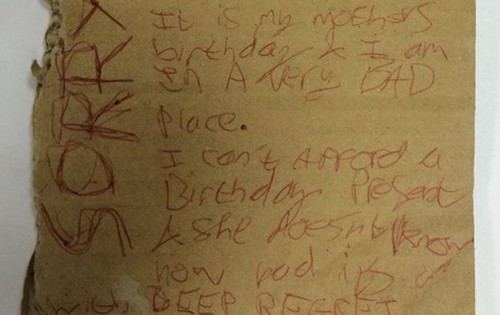 SORRY
It is my mothers
birthday & I am
In A very BAD
place.
I can't afford a
Birthday Present
& she doesn't know
how bad it is
with DEEP REGRET